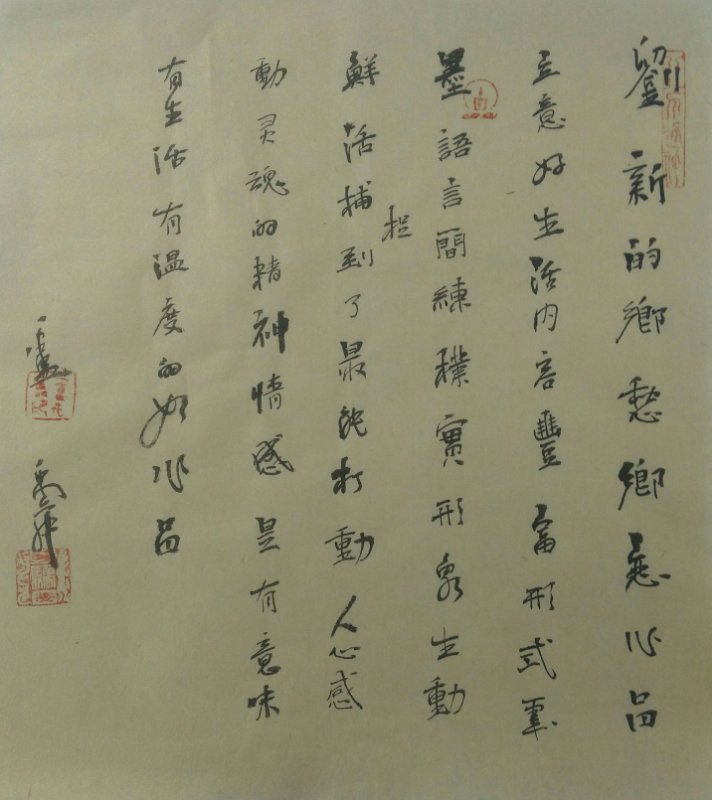 劉新的鄉愁鄉戀作品
立意好生活内容豐富形式
墨語言簡練樸實形象生動
鮮活捕捉到了最能打動人心感
動灵魂的精神情感是有意味
有生活有温度的好作品